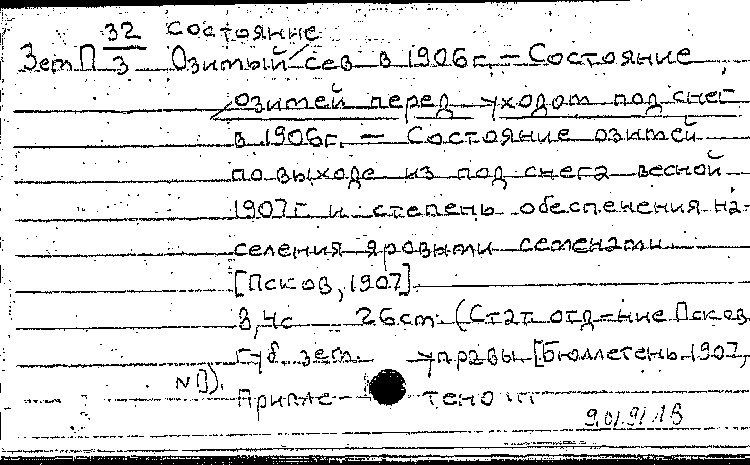 32 состояние
Зем П 3 Озимый сев в 1906г. – Состояние
озимей перед уходом под снег
в 1906г. – Состояние озимей
по выходе из под снега весной
1907г и степень обеспечения на-
селения яровыми семенами.
[Псков, 1907].
8, 4с 26см. (Стат. отд-ние Псков.
губ. зем. управы [Бюллетень 1907,
N 1).
Припле- тено
9.01.91